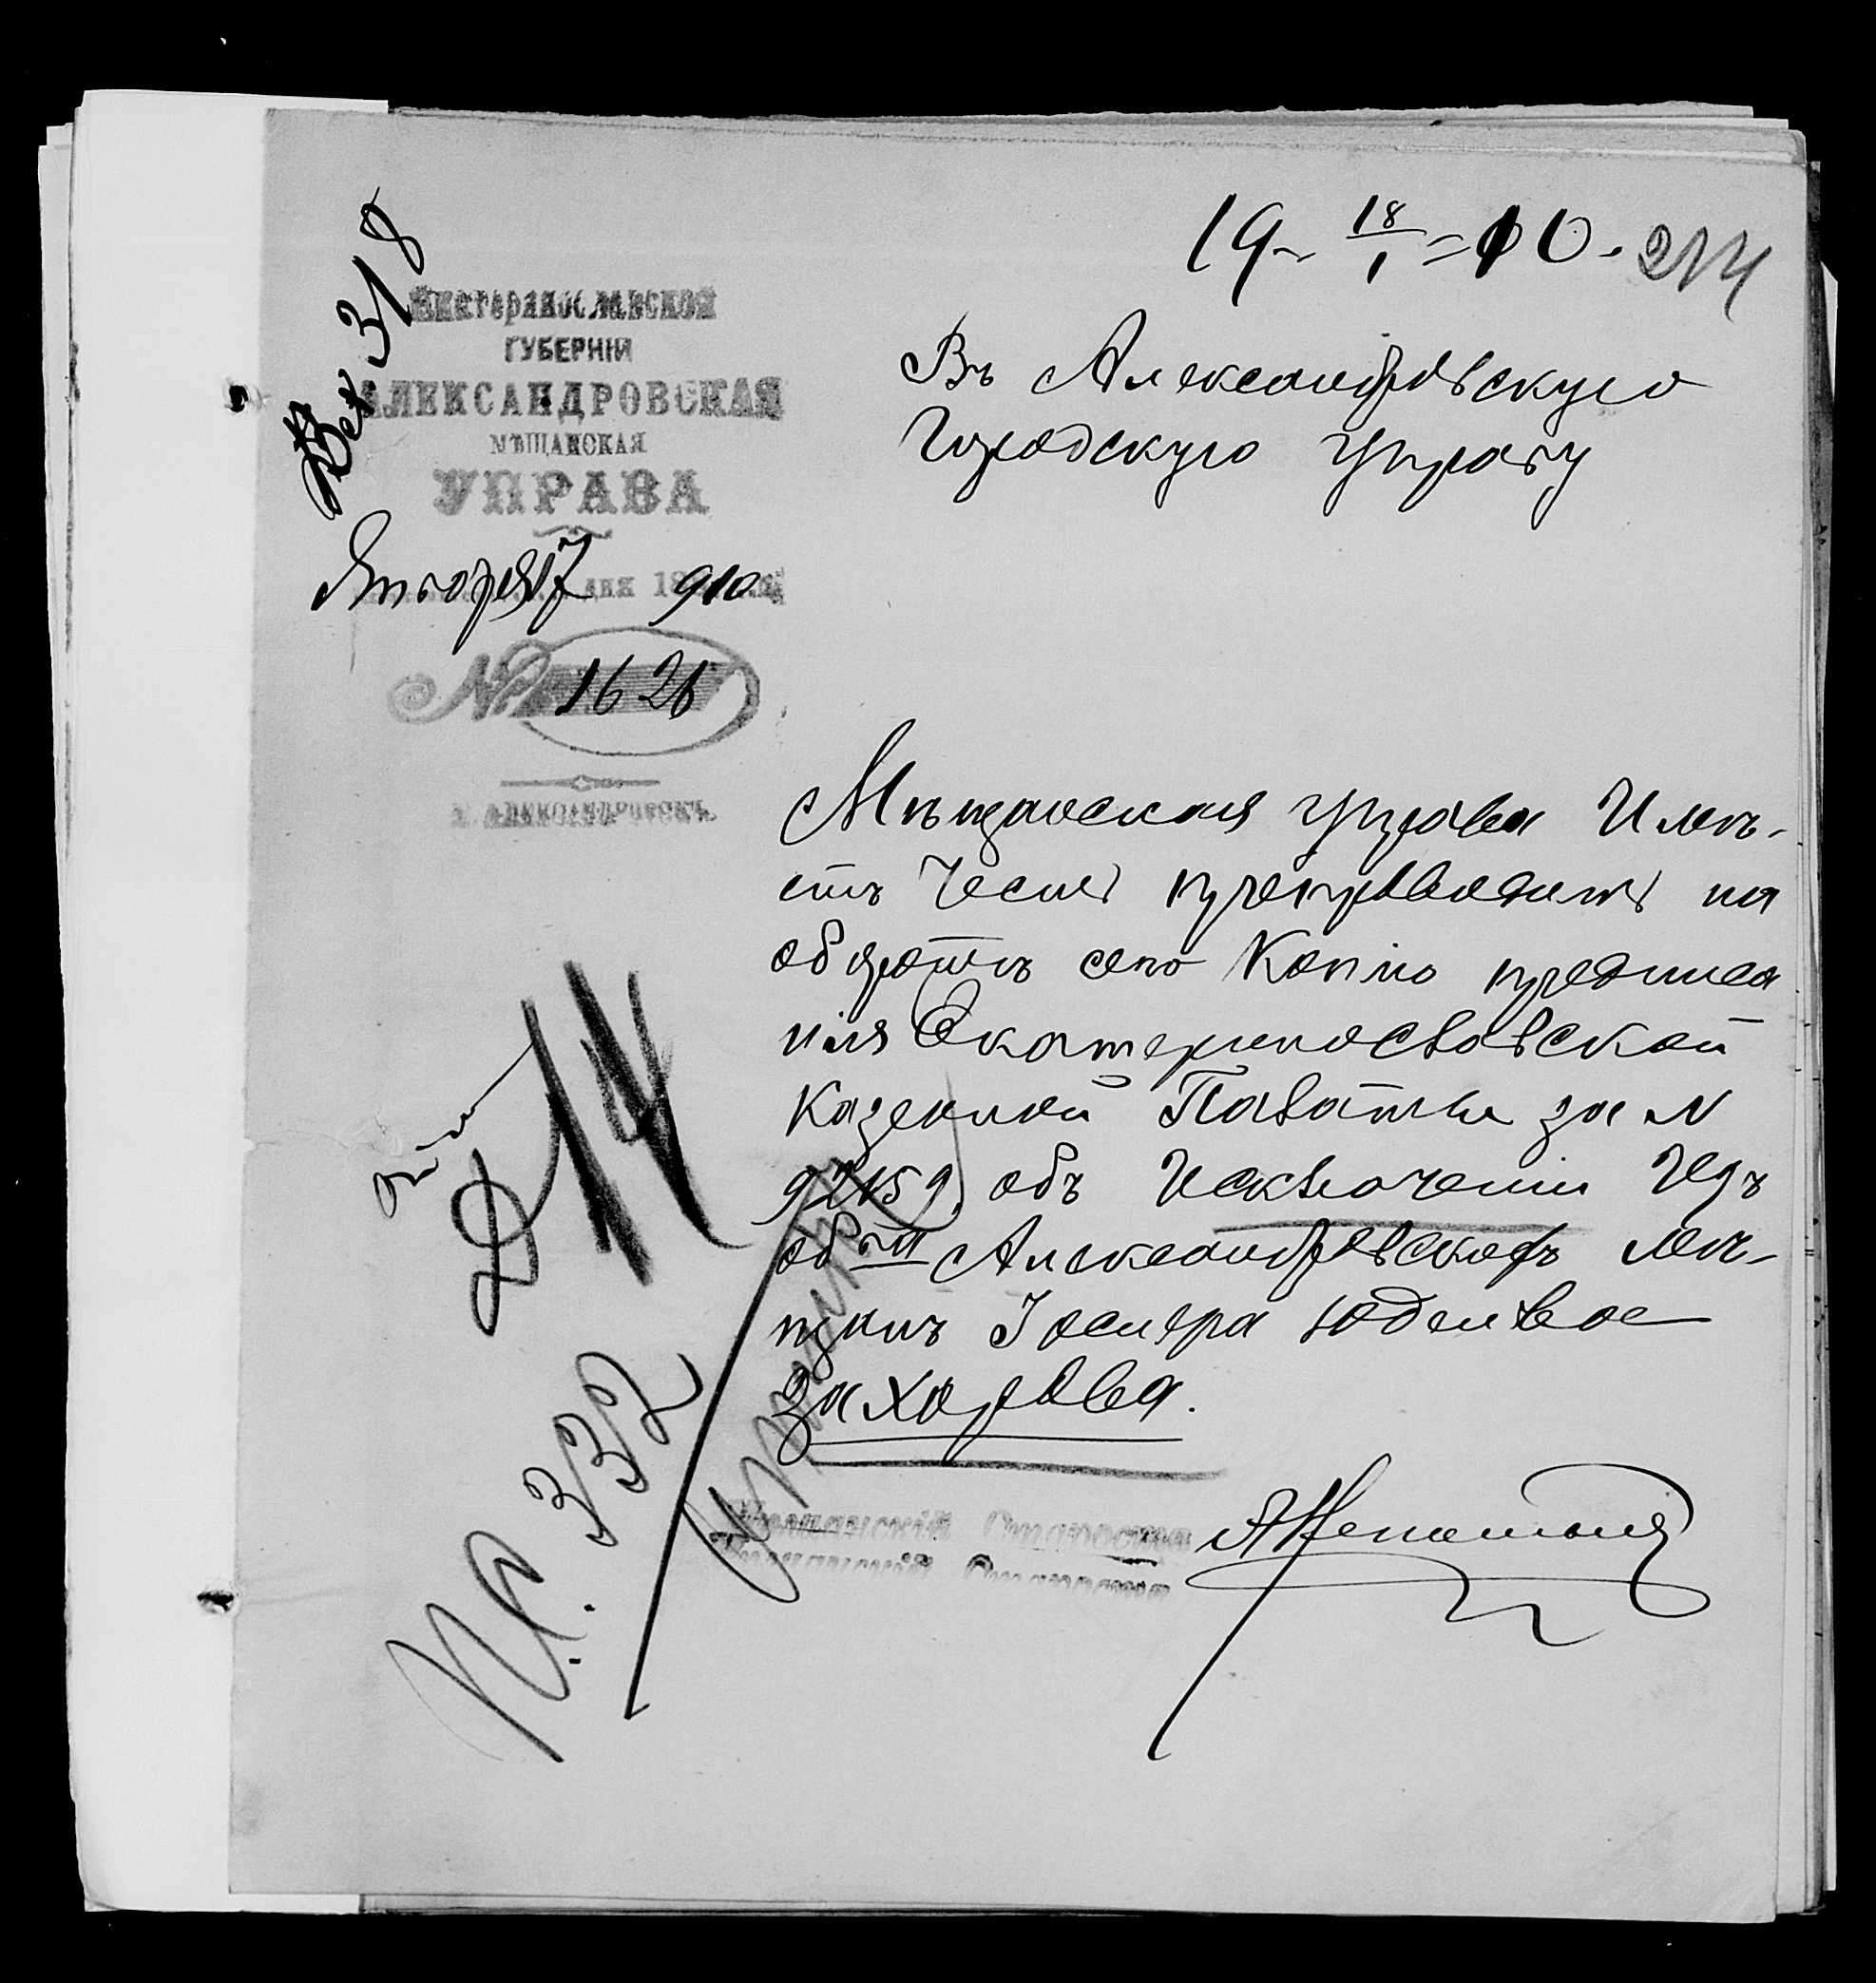 19 18/1 10. 214
Вх 318
Екатеринославской
ГУБЕРНІИ
АЛЕКСАНДРОВСКАЯ
МѢЩАНСКАЯ
УПРАВА
Января 17 дня 1910
№ 1626
Г. АЛЕКСАНДРОВСКЪ.
Въ Александровскую
Городскую Управу
Мѣщанская Управа Имѣ-
етъ Честь препроводить на
оборотѣ сего Копію предписа
нія Екатеринославской
Казенной Палаты за N
92159, объ Исключеніи Изъ
общ Александровскихъ мѣ-
щанъ Іосифа Юделевое
Захорова.
Д 14
К. 332
Мещанскій Староста
Мещанскій Староста